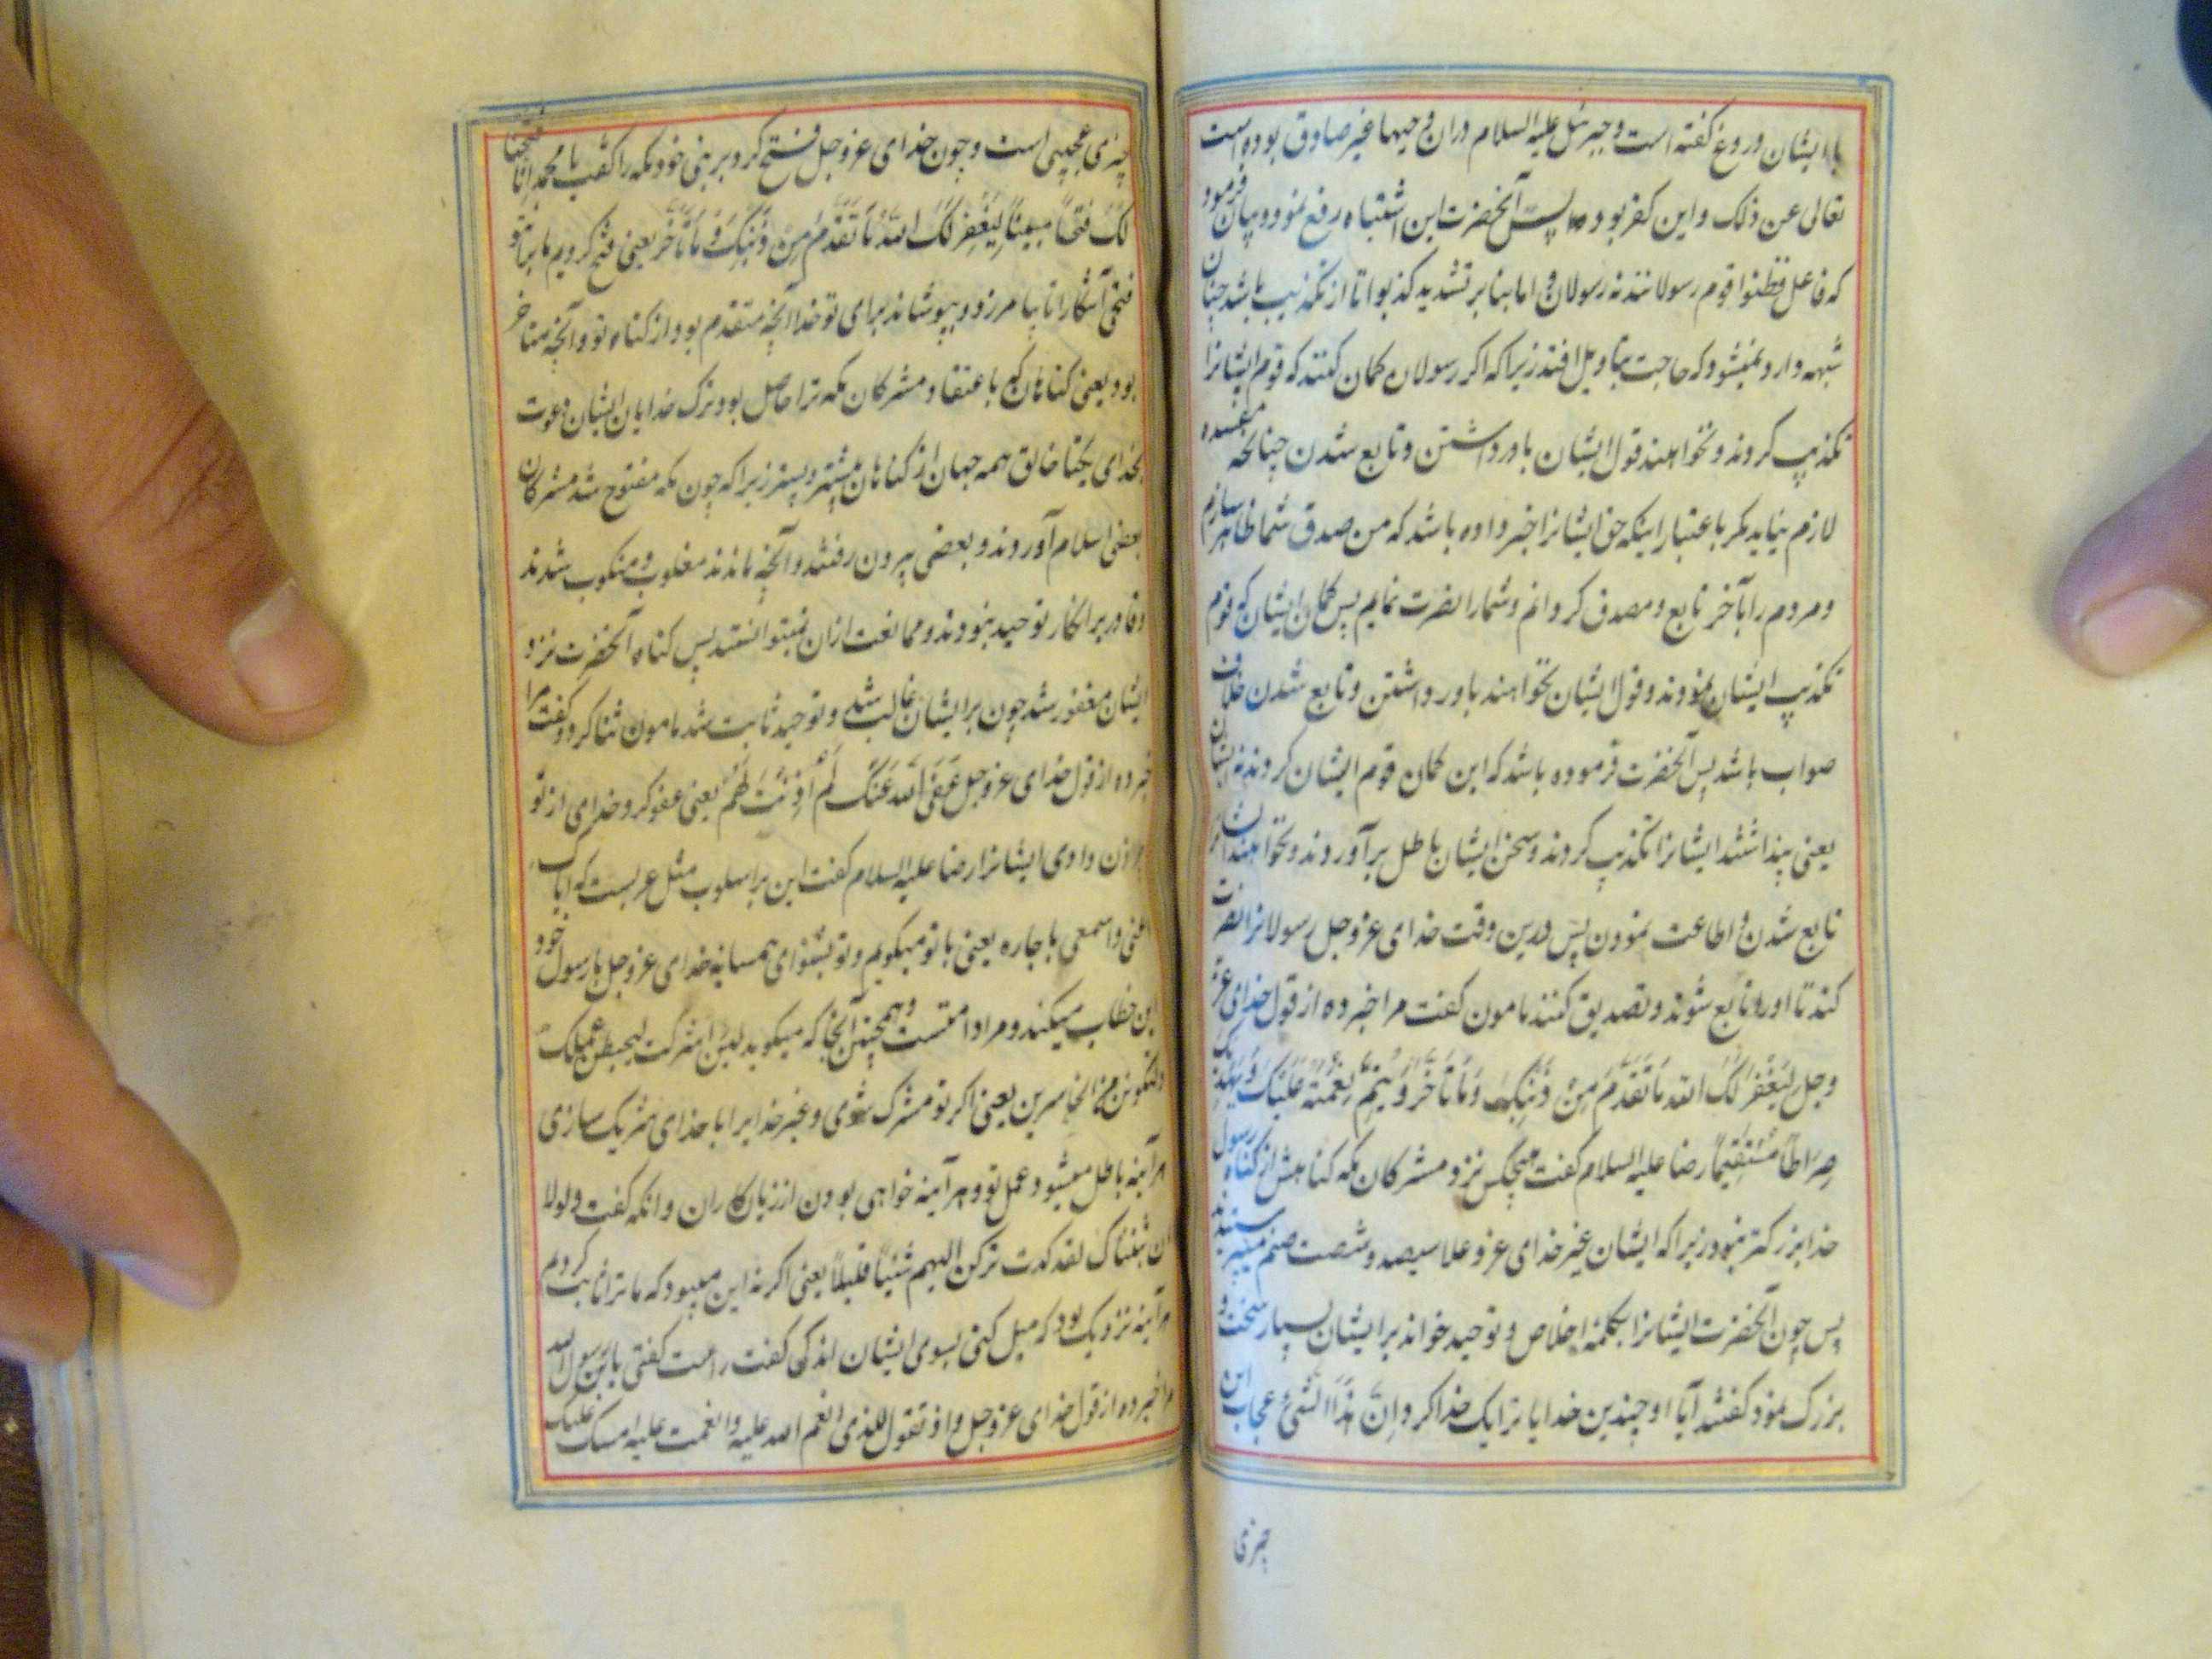 با ایشان دروغ گفته است و جبرئیل علیه السلام دران وحیها غیر صادق بوده است
تعالی عن ذلک و این کفر بود پس آنحضرت این اشتباه رفع نمود و بیان فرمود
که فاعل فظنوا قوم رسولانند نه رسولان و اما بنابر تشدید کذبوا تا از تکذیب باشد چنان
شبهه وارد نمیشود که حاجت بتاویل افتد زیرا که اکر رسولان کمان کنند که قوم ایشانرا
تکذیب کردند و نخواهند قول ایشان باور داشتن و تابع شدن چنانکه مفسده
لازم نیاید مکر باعتبار اینکه حق ایشانرا خبر داده باشد که من صدق شما ظاهر سازم
و مردم را بآخر تابع و مصدق کردانم و شما را نصرت نمایم پس کمان ایشان که قوم
تکذیب ایشان نمودند و قول ایشان نخواهند باور داشتن و تابع شدن خلاف
صواب باشد پس آنحضرت فرموده باشد که این کمان قوم ایشان کردند نه ایشان
یعنی پنداشتند ایشانرا تکذیب کردند و سخن ایشان باطل برآوردند و نخواهند
تابع شدن و اطاعت نمودن پس درین وقت خدای عز و جل رسولانرا نصرت
کند تا او را تابع شوند و تصدیق کنند مامون کفت مرا خبر ده از قول خدای عز
و جل لِیَغْفِرَ لَکَ الله مَا تَقَدَّمَ مِنْ ذَنْبِکَ وَ مَا تَأَخَّرَ وَ یُتِمَّ نِعْمَتَهُ عَلَیْکَ وَ یَهْدِیَکَ
صِرَاطاً مُسْتَقِیماً رضا علیه السلام کفت هیچکس نزد مشرکان مکه کناهش از کناه رسول
خدا بزرکتر نبود زیرا که ایشان غیر خدای عز و علا سیصد و شصت صنم میپرستیدند
پس چون آنحضرت ایشانرا بکلمه اخلاص و توحید خواند بر ایشان بسیار سخت و
بزرک نمود کفتند آیا او چندین خدایانرا یک خدا کرد اِنَّ هَذَا لَشَیْءٌ عُجَاب این
چیزی
چیزی عجیبی است و چون خدای عز و جل فتح کرد بر نبی خود مکه را کفت یا محمد اِنَّا فتحنا
لَکَ فَتْحاً مبیناً لِیَغْفِرَ لَکَ اللهُ مَا تَقَدَّمَ مِنْ ذَنْبِکَ وَ مَا تَأَخَّرَ یعنی فتح کردیم ما برا تو
فتحی آشکارا تا بیامرزد و بپوشاند برای تو خدا آنچه متقدم بود از کناه تو و آنچه متاخر
بود یعنی کناهان که باعتقاد مشرکان مکه ترا حاصل بود ترک خدایان ایشان و دعوت
بخدای یکتا خالق همه جهان از کناهان پیشتر و پستر زیرا که چون مکه مفتوح شد مشرکان
بعضی اسلام آوردند و بعضی بیرون رفتند و آنچه ماندند مغلوب و منکوب شدند
و قادر بر انکار توحید نبودند و ممانعت ازان نمیتوانستند پس کناه آنحضرت نزد
ایشان مغفور شد چون بر ایشان غالب شد و توحید ثابت شد مامون ثنا کرد و کفت مرا
خبر ده از قول خدای عز و جل عَفَی اللَه عَنْکَ لِمَ اَذِنْتَ لَهُمْ یعنی عفو کرد خدای از تو
اذن دادی ایشانرا رضا علیه السلام کفت این بر اسلوب مثل عربست که ایاک
اعنی و اسمعی یا جاره یعنی با تو میکویم و تو بشنو ای همسایه خدای عز و جل با رسول خود
این خطاب میکند و مراد امتست و همچنین آنجا که میکوید لئن اشرکت لیحبطن عملک
و لتکونن من الخاسرین یعنی اکر تو مشرک شوی و غیر خدا را با خدای شریک سازی
هر آینه باطل میشود عمل تو و هر آینه خواهی بودن از زیان‌کاران و انکه کفت و لولا
ان ثبتناک لقد کدت ترکن الیهم شیئاً قلیلاً یعنی اکر نه این میبود که ما ترا ثابت کردیم
هر آینه نزدیک بود که میل کنی بسوی ایشان اندکی کفت راست کفتی یا بن رسول الله
مرا خبر ده از قول خدای عز و جل و اذ تقول للذی انعم الله علیه و انعمت علیه امسک علیک